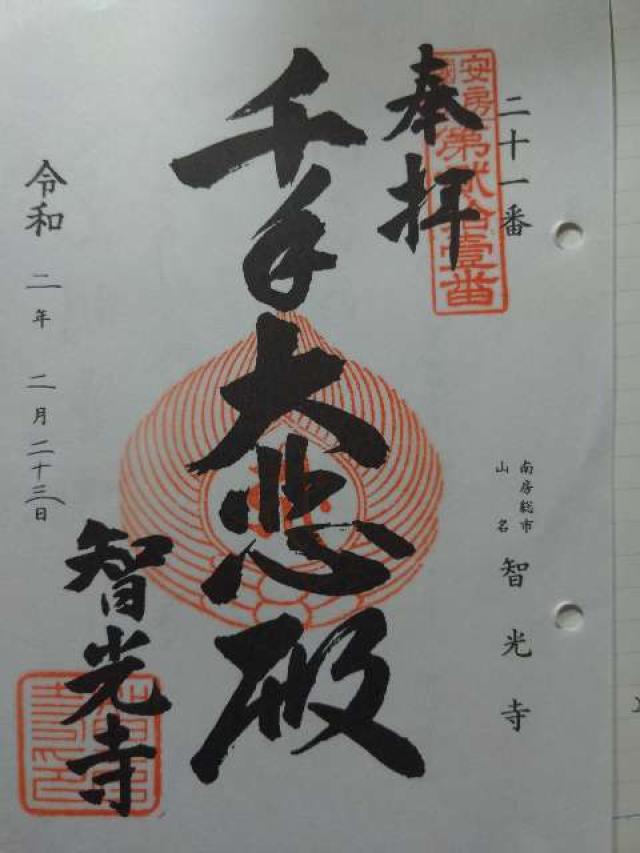 二十一番
安房国
第弐拾壹番
奉拝
千手大悲殿
南房総市
山名
智光寺
智光寺
令和二年二月二十三日